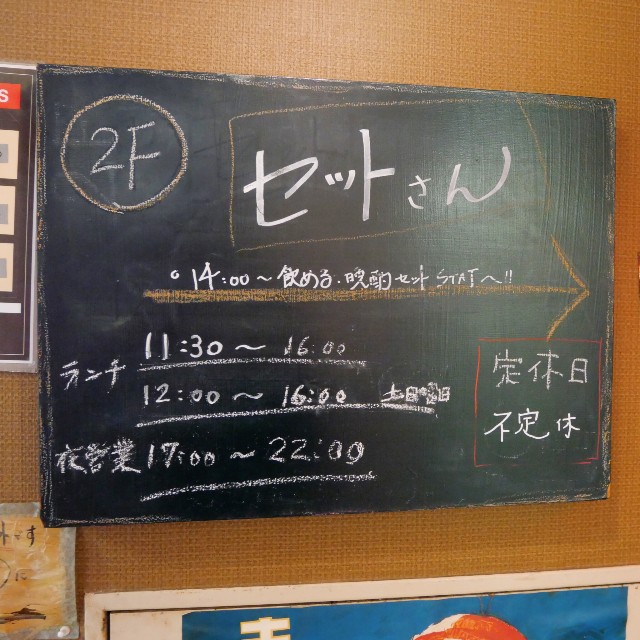 S
2F
セットさん
○14:00～飲める.晩酌セットSTATへ!!
ランチ 11:30 ～ 16:00
12:00 ～ 16:00 土日祝日
夜営業 17:00 ～ 22:00
定休日
不定休